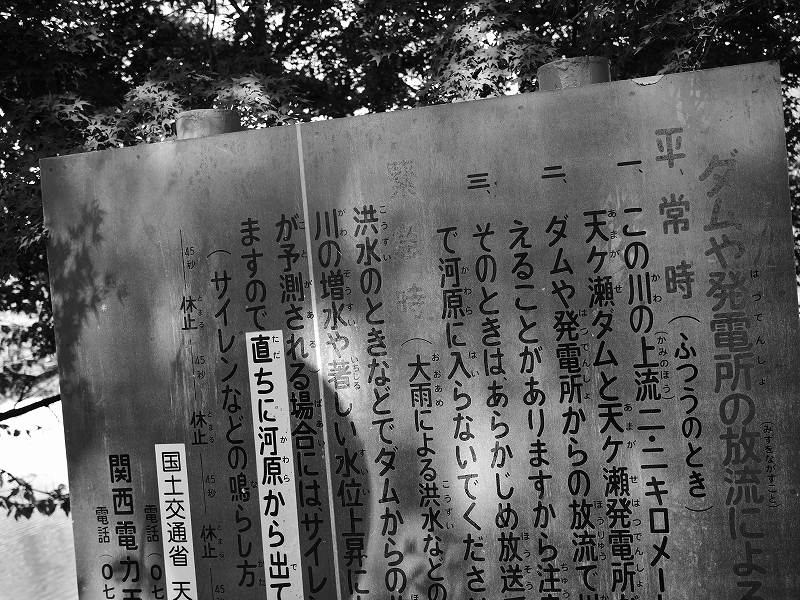 ダムや発電所の放流による
平常時（ふつうのとき）
一、この川の上流二・二キロメー
天ケ瀬ダムと天ケ瀬発電所が
二、ダムや発電所からの放流で川
えることがありますから注
三、そのときは、あらかじめ放送
で河原に入らないでくださ
緊急時（大雨による洪水などの
洪水のときなどでダムからの
川の増水や著しい水位上昇に
が予測される場合にはサイレン
ますので直ちに河原から出て
（サイレンなどの鳴らし方
45秒 休止 45秒 休止 45秒 休止
国土交通省 天
電話（〇七
関西電力
電話（〇七